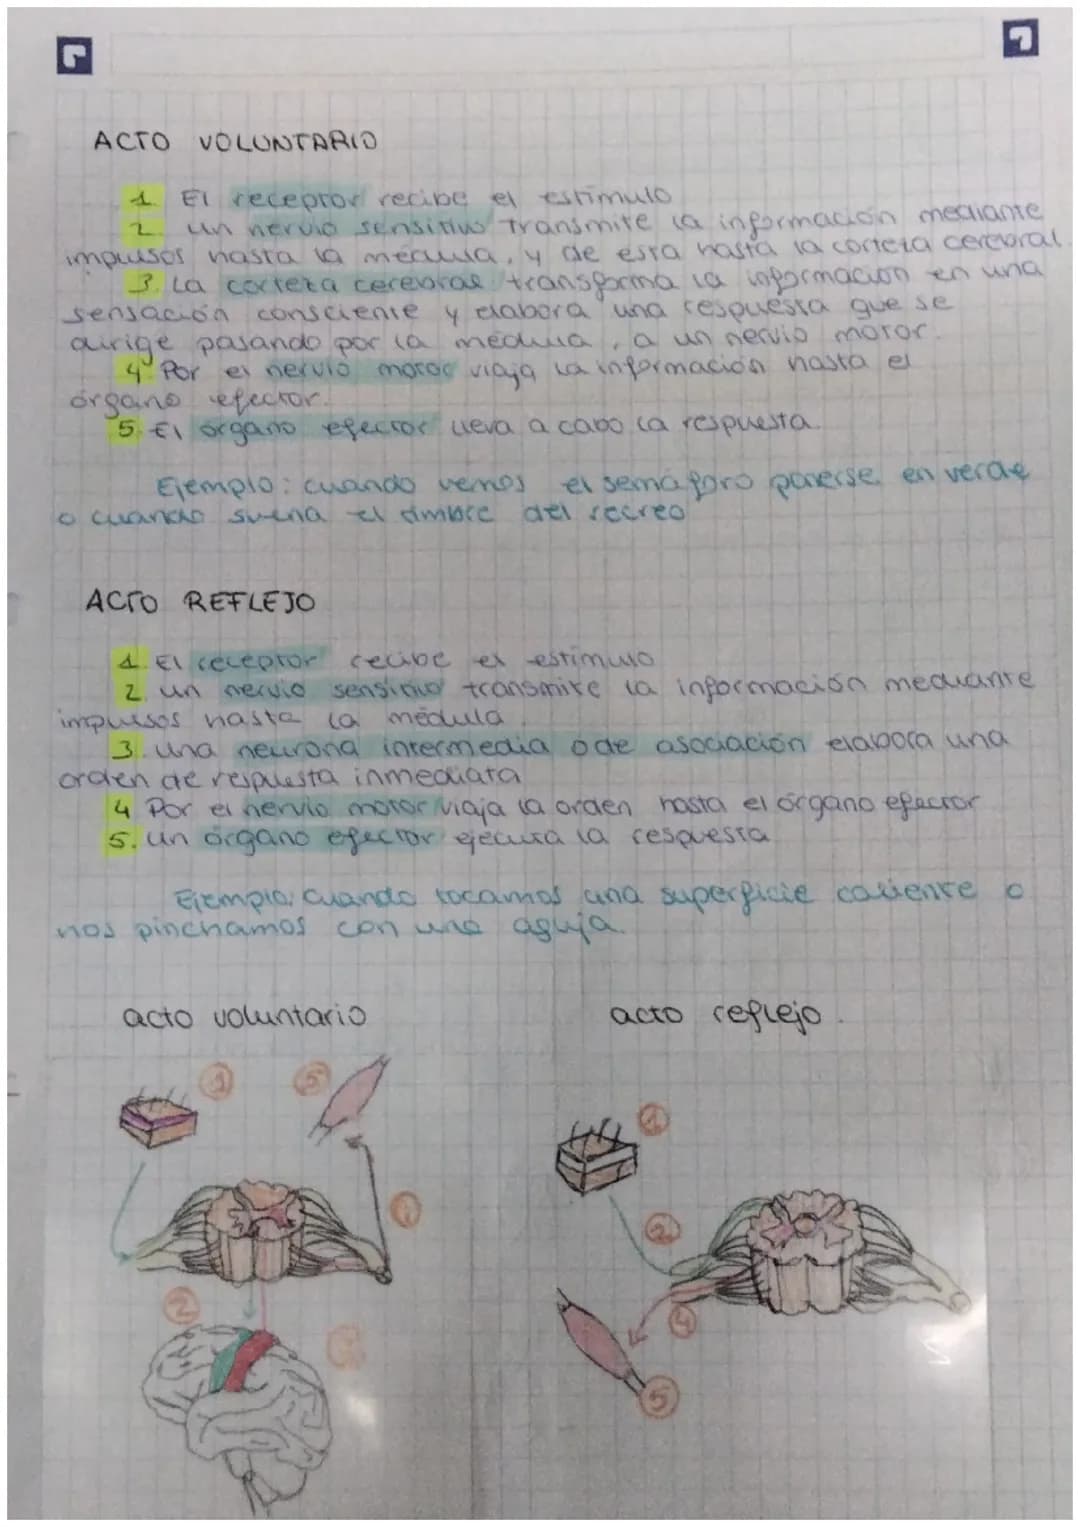 ACTO VOLUNTARIO
1. El receptor recibe el estímulo
2. un nervio sensitivo transmite la información mediante
impulsos hasta la médula, y de esta hasta la corteza cerebral.
3. La corteza cerebral transforma la información en una
sensación consciente y elabora una respuesta que se
dirige pasando por la médula, a un nervio motor.
4. Por el nervio motor viaja la información hasta el
órgano efector.
5. El órgano efector lleva a cabo la respuesta.
Ejemplo: cuando vemos el semáforo ponerse en verde
o cuando suena el timbre del recreo
ACTO REFLEJO
1. El receptor recibe el estímulo
2. un nervio sensitivo transmite la información mediante
impulsos hasta la médula.
3. una neurona intermedia o de asociación elabora una
orden de respuesta inmediata
4 Por el nervio motor viaja la orden hasta el órgano efector
5. un órgano efector ejecuta la respuesta
Ejemplo: Cuando tocamos una superficie caliente o
nos pinchamos con una aguja.
acto voluntario
acto reflejo.
1
5
2
1
2
4
5